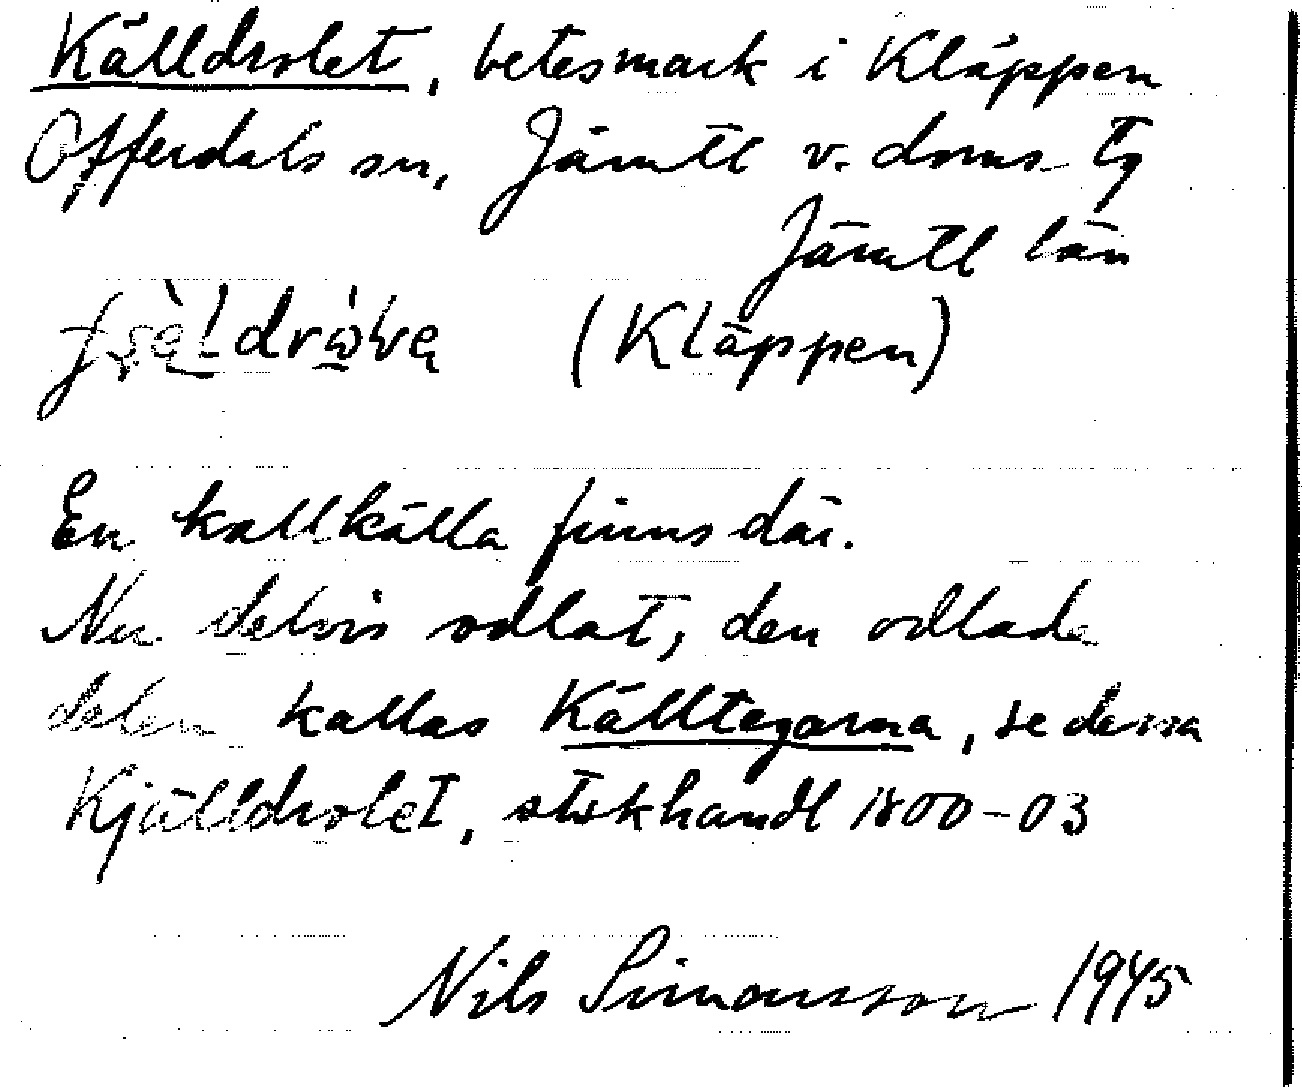 Källdrolet, betesmark i Kläppen
Offerdals sn, Jämtl v. doms tg
Jämtl län
(Kläppen)
En kallkälla finns där.
Nu delvis odlat, den odlade
delen kallas Källtegarna, se dessa
Kjälldrolet, stskhandl 1800-03
Nils Simonsson 1945